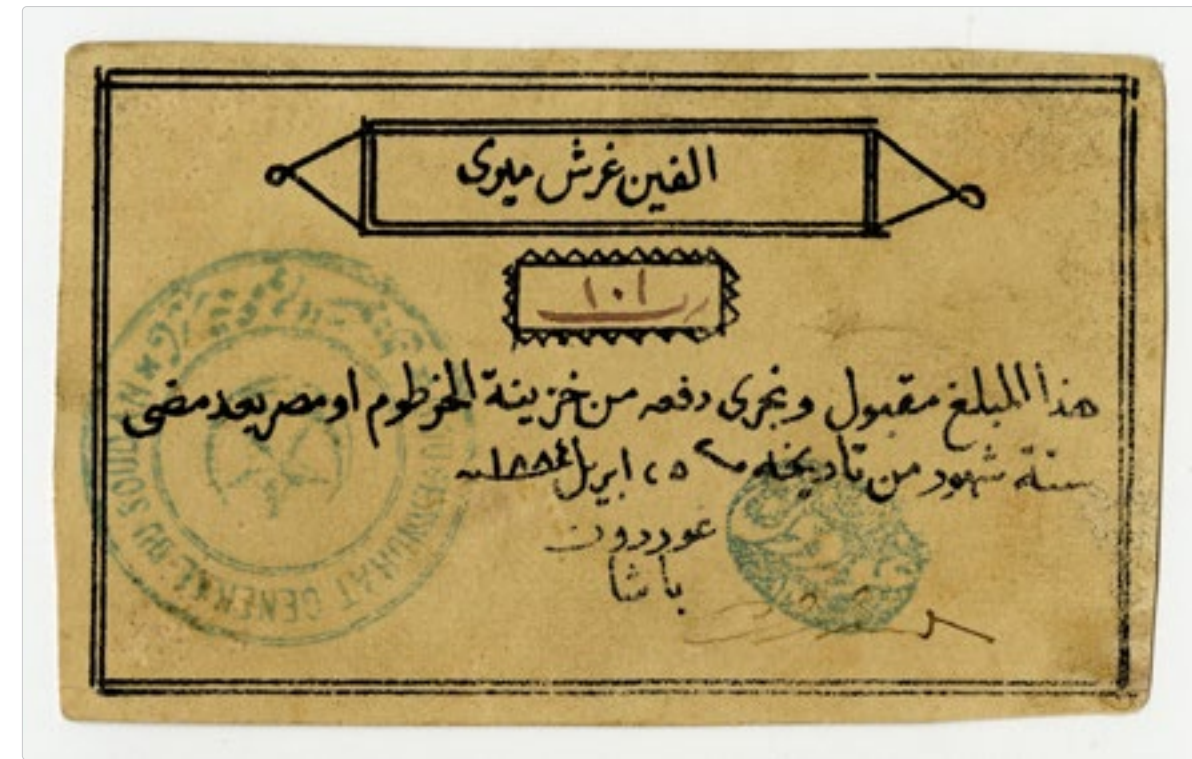 الفين غرش ميرى
١٠١
هذا المبلغ مقبول ونجرى دفعه من خزينة الخرطوم او مصر بعد مضى
ستة شهور من تاريخه ٢٥ ابريل ١٨٨٤
غوردون
باشا
GOUVERNORAT GENERAL DU SOUDAN